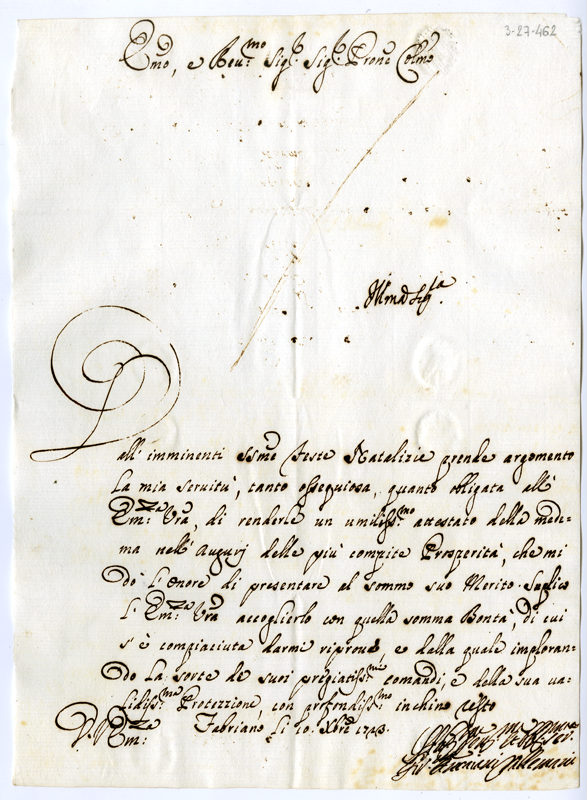 3-27-462
Emō, e Reu:mo Sigr. Sigr. Pron̄e Colmō
Dall' imminenti SSme feste Natalizie prende argomento
la mia seruitù, tanto ossequiosa, quanto obligata all'
Em:za Vrā, di renderle un umiliss:mo attestato della mede-
ma nell' Augurj delle più compite Prosperità, che mi
dò l'onore di presentare al sommo suo Merito. Suplico
l'Em:za Vrā accoglierlo con quella somma Bontà, di cui
s'è compiaciuta darmi riproue, e dalla quale imploran-
do la sorte de suoi pregiatiss:mi comandi, e della sua ua-
lidiss:ma Protezzione, con profondiss:mo inchino resto
D. V. Em:za
Fabriano li 10. Xbre 1743.